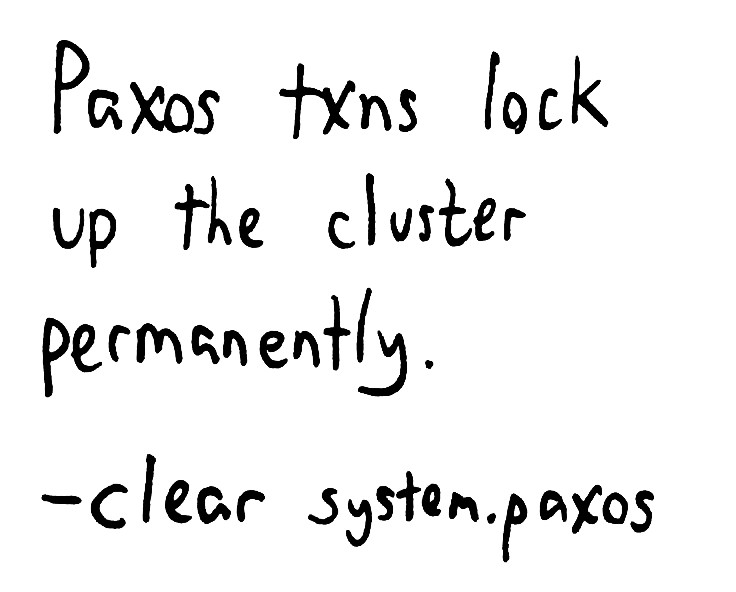 Paxos txns lock
up the cluster
permanently.
-clear system.paxos